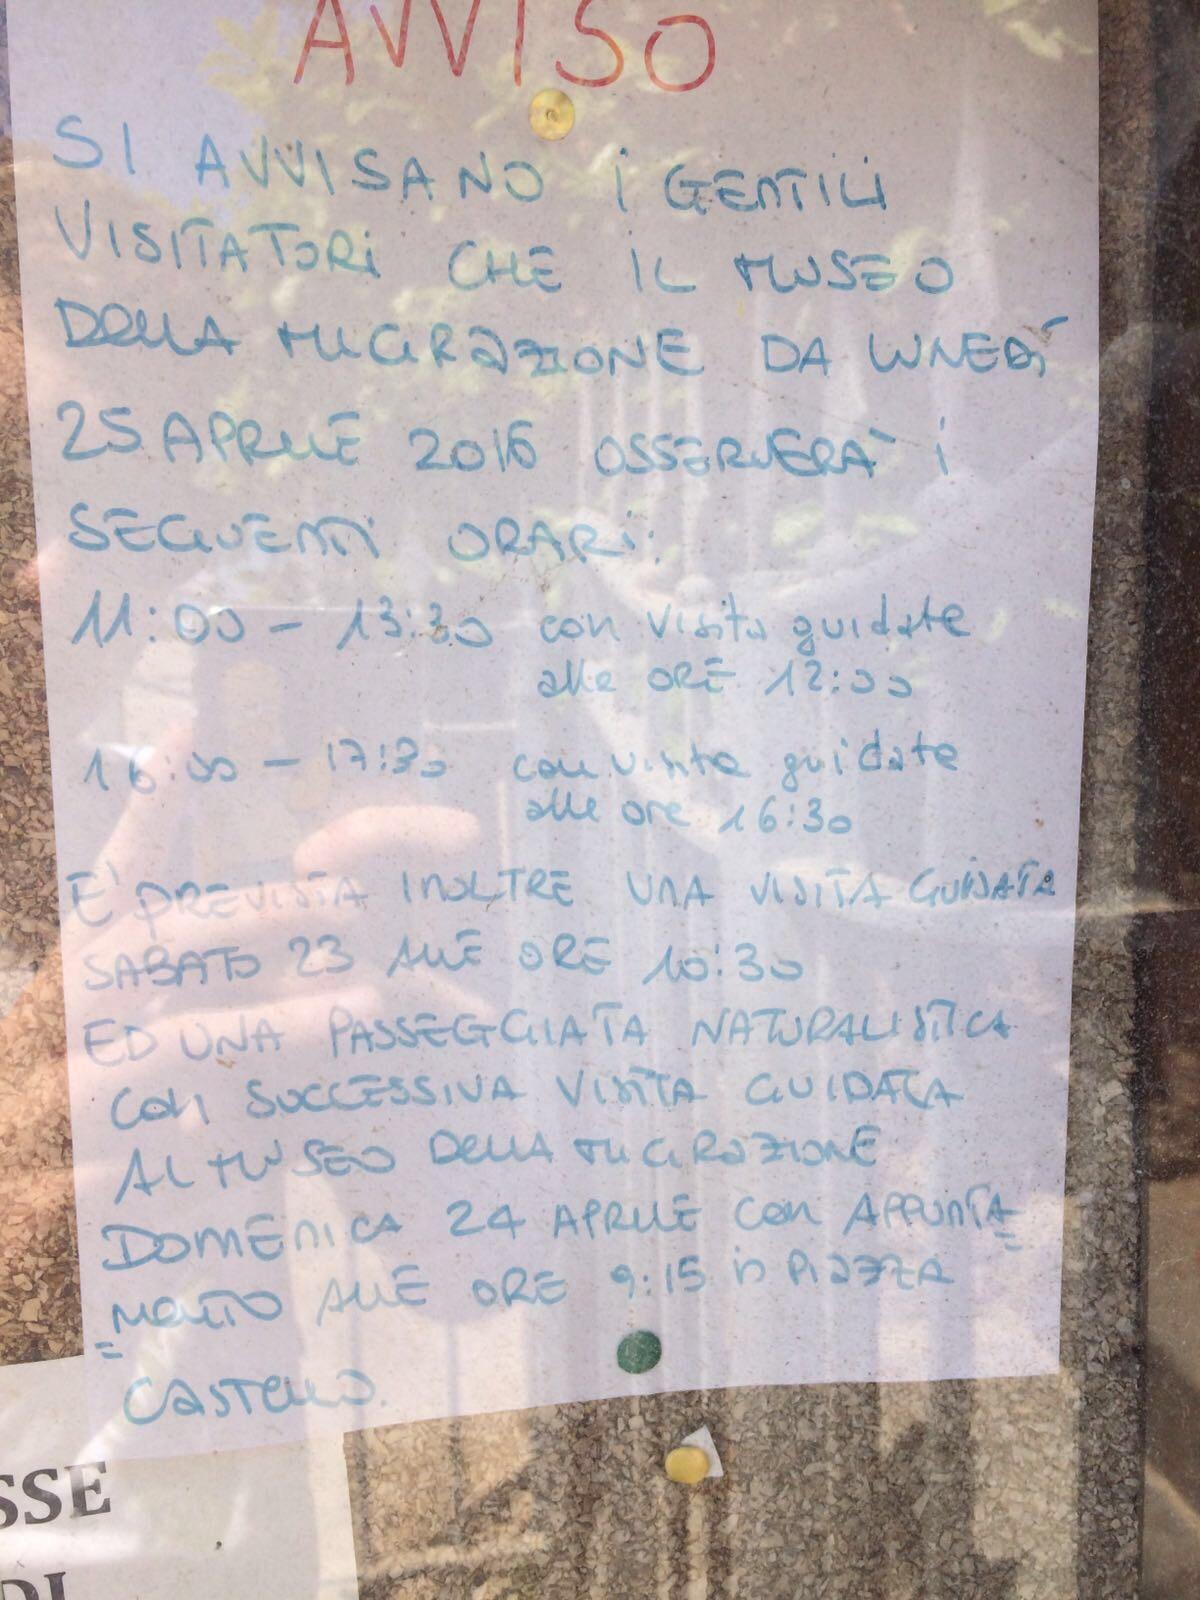 AVVISO
SI AVVISANO i GENTILI
VISITATORi CHE IL MUSEO
DELLA MIGRAZIONE DA LUNEDÌ
25 APRILE 2016 OSSERVERÀ i
SEGUENTI ORARi:
11:00 - 13:30 con visite guidate
alle ORE 12:00
16:00 - 17:30 con visite guidate
alle ore 16:30
E' PREVISTA INOLTRE UNA VISITA GUIDATA
SABATO 23 ALLE ORE 10:30
ED UNA PASSEGGIATA NATURALISTICA
CON SUCCESSIVA VISITA GUIDATA
AL MUSEO DELLA MIGRAZIONE
DOMENICA 24 APRILE CON APPUNTA=
=MENTO ALLE ORE 9:15 in PIAZZA
CASTELLO.
SSE
DI